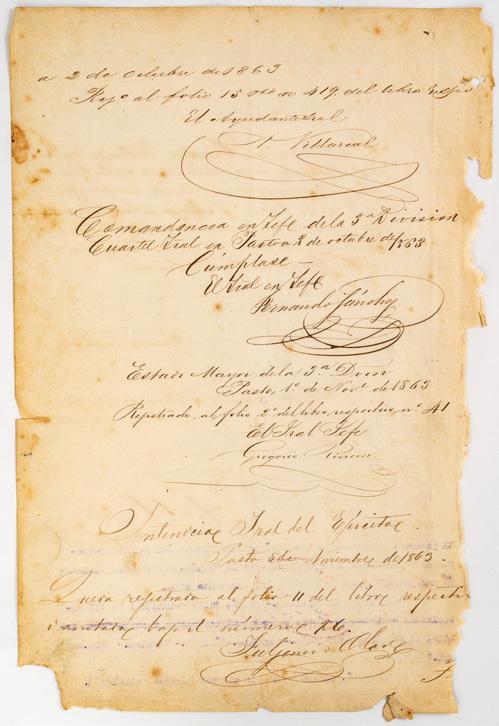 a 2 de Octubre de 1863
Rejo al folio 15 nto no 419 del libro respvo
El Ayudante Jral
N. Villareal
Comandancia en Jefe de la 3ª Division
Cuartel Jral en Pasto a 2 de octubre de 1863
Cúmplase —
El Jral en Jefe
Fernando Sánchez
Estado Mayor de la 3ª. Dvon
Pasto, 1º de Nove de 1863
Rejistrado al folio 2º del libro respectivo, nº 41
El Jral Jefe
Gregorio Rincon
Intendencia Jral del Ejército
Pasto 5 de Noviembre de 1863.
Queda registrado al folio 11 del libro respecti
i anotado bajo el número
Fulgencio